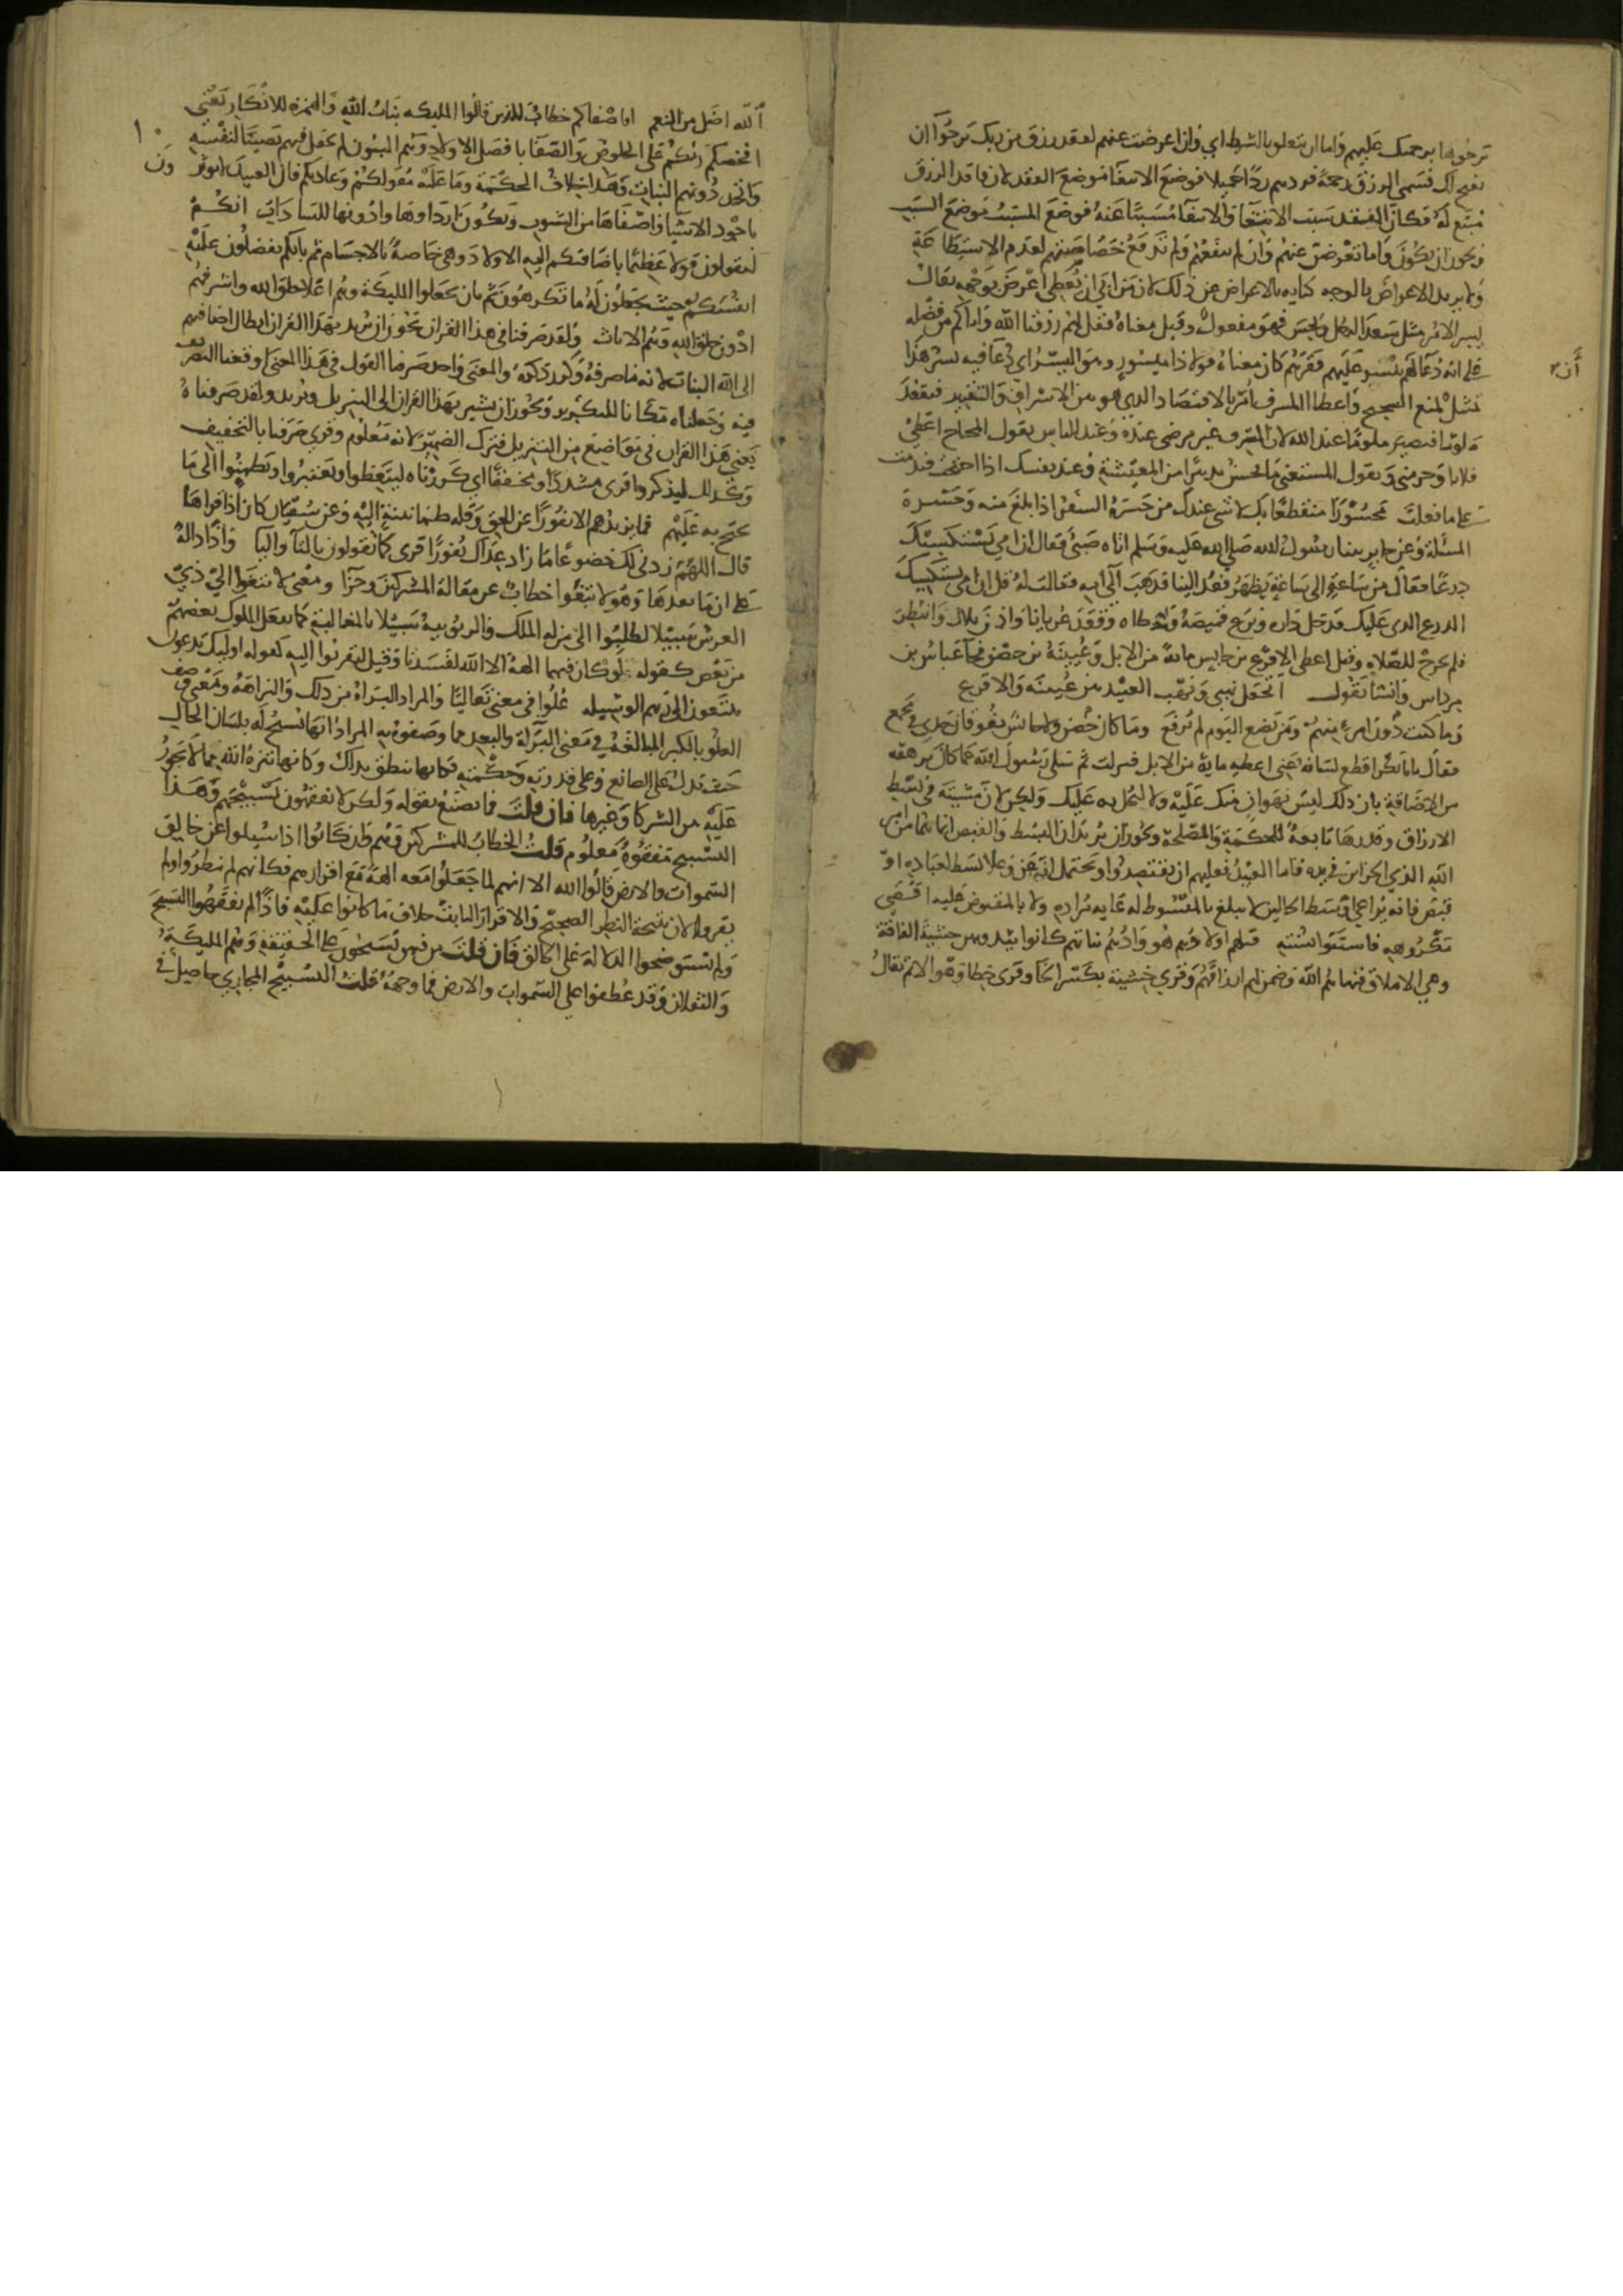 ترجوها برحمتك عليهم واما ان يتعلق بالشرط اي وان اعرضت عنهم لفقد رزق من ربك ترجوا ان
أن
يفتح لك فسمى الرزق رحمة فردهم ردا جميلا فوضع الابتغا موضع الفقد لان فاقد الرزق
مبتغ له فكان الفقد سبب الابتغا والابتغا مسببا عنه فوضع المسبب موضع السبب
ويجوز ان يكون واما تعرضن عنهم وان لم تنفعهم ولم ترفع خصاصتهم لعدم الاستطاعة
ولا يريد الاعراض بالوجه كناية بالاعراض عن ذلك لان من ابى ان يعطي اعرض بوجهه يقال
يسر الامر مثل سعد الرجل ونحس فهو مفعول وقيل معناه فقل لهم رزقنا الله واياكم من فضله
على انه دعا لهم ييسر عليهم فقرهم كان معناه قولا ذا ميسور وهو اليسر اي دعا فيه يسر هذا
تمثيل لمنع الشحيح واعطا المسرف امر بالاقتصاد الذي هو بين الاسراف والتقتير فتقعد
ملوما فتصير ملوما عند الله لان المسرف غير مرضي عنده وعند الناس يقول المحتاج اعطى
فلانا وحرمني ويقول المستغني ما يحسن تدبير امر المعيشة وعند نفسك اذا احتجت فندمت
على ما فعلت محسورا منقطعا بك لا شي عندك من حسره السفر اذا بلغ منه وحسره
المسئلة وعن جابر بينا رسول الله صلى الله عليه وسلم اتاه صبي فقال ان امي تستكسيك
درعا فقال من ساعة الى ساعة يظهر فعد الينا فذهب الى امه فقالت له قل ان امي تستكسيك
الدرع الذي عليك فدخل داره ونزع قميصه واعطاه وقعد عريانا واذن بلال وانتظر
فلم يخرج للصلاة وقيل اعطى الاقرع بن حابس مائة من الابل وعيينة بن حصن فجا عباس بن
مرداس وانشا يقول اتجعل نهبي ونهب العبيد بين عيينة والاقرع
وما كنت دون امرئ منهم ومن تضع اليوم لم يرفع وما كان حصن ولا حابس يفوقان جدي في مجمع
فقال يا ابا بكر اقطع لسانه عني اعطه ماية من الابل فنزلت ثم سلى رسول الله عما كان يرهقه
من الاضاقة بان ذلك ليس لهوان منك عليه ولا لبخل به عليك ولكن لان مشيته في بسط
الارزاق وقدرها تابعة للحكمة والمصلحة ويجوز ان يريد ان البسط والقبض انما هما من امر
الله الذي الخزاين في يده فاما العبيد فعليهم ان يقتصدوا ويحتمل انه عز وعلا بسط لعباده او
قبض فانه يراعي اوسط الحالين لا يبلغ بالمبسوط له غاية مراده ولا بالمقبوض عليه اقصى
مكروهه فاستنوا بسنته قتلهم اولادهم هو وادهم بناتهم كانوا يئدوهن خشية الفاقة
وهي الاملاق فنهاهم الله وضمن لهم ارزاقهم وقري خشية بكسر الخا وقرى خطا وهو الاثم يقال
الله افضل من النعم افاصفاكم خطاب للذين قالوا المليكة بنات الله والهمزة للانكار يعني
افخصكم ربكم على الخلوص والصفا بافضل الاولاد وهم البنون لم يجعل فيهم نصيبا لنفسه
واتخذ دونهم البنات وهذا خلاف الحكمة وما عليه معقولكم وعادتكم فان العبيد لا يوثرون
باجود الاشيا واصفاها من الشوب ويكون ارداوها وادونها للسادات انكم
لتقولون قولا عظيما باضافتكم اليه الاولاد وهي خاصة بالاجسام ثم بانكم تفضلون عليه
انفسكم حيث تجعلون له ما تكرهون ثم بان تجعلوا المليكة وهم اعلا خلق الله واشرفهم
ادون خلق الله وهم الاناث ولقد صرفنا في هذا القران يجوز ان يريد بهذا القران ابطال اضافتهم
الى الله البنات لانه مما صرفه وكرر ذكره والمعنى ولقد صرفنا القول في هذا المعنى او وقعنا التصريف
فيه وجعلناه مكانا للتكرير ويجوز ان يشير بهذا القران الى التنزيل ويريد ولقد صرفناه
يعني هذا القران في مواضع من التنزيل فترك الضمير لانه معلوم وقري صرفنا بالتخفيف
وكذلك ليذكروا قرى مشددا ومخففا اي كررناه ليتعظوا ويعتبروا ويطمئنوا الى ما
يحتج به عليهم فما يزيدهم الا نفورا عن الحق وقله طمانينة اليه وعن سفيان كان اذا قراها
قال اللهم زدني لك خضوعا ما زاد اعداك نفورا قرى كما تقولون بالتا واليا واذا دالة
على ان ما بعدها وهو لابتغوا خطاب عن مقالة المشركين وجزا ومعنى لابتغوا الى ذي
العرش سبيلا لطلبوا الى من له الملك والربوبية سبيلا بالمغالبة كما يفعل الملوك بعضهم
من بعض كقوله لو كان فيهما الهة الا الله لفسدتا وقيل لتقربوا اليه كقوله اوليك يدعون
يبتغون الى ربهم الوسيله علوا في معنى تعاليا والمراد البراة من ذلك والنزاهة ومعنى وصف
العلو بالكبر المبالغة في معنى البراة والبعد مما وصفوه به المراد انها تسبح له بلسان الحال
حيث تدل على الصانع وعلى قدرته وحكمته فكانها تنطق بذاك وكانها تنزه الله مما لا يجوز
عليه من الشركا وغيرها فان قلت فما تصنع بقوله ولكن لا تفقهون تسبيحهم وهذا
التسبيح مفقوه معلوم قلت الخطاب للمشركين وهم وان كانوا اذا سيلوا عن خالق
السموات والارض قالوا الله الا انهم لما جعلوا معه الهة مع اقرارهم فكانهم لم ينظروا ولم
يقروا لان نتيجة النظر الصحيح والاقرار الثابت خلاف ما كانوا عليه فاذا لم يفقهوا التسبيح
ولم يستوضحوا الدلالة على الخالق فان قلت من فيهن يسبحون على الحقيقة وهم المليكة
والثقلان وقد عطفوا على السموات والارض فما وجهه قلت التسبيح المجازي حاصل في